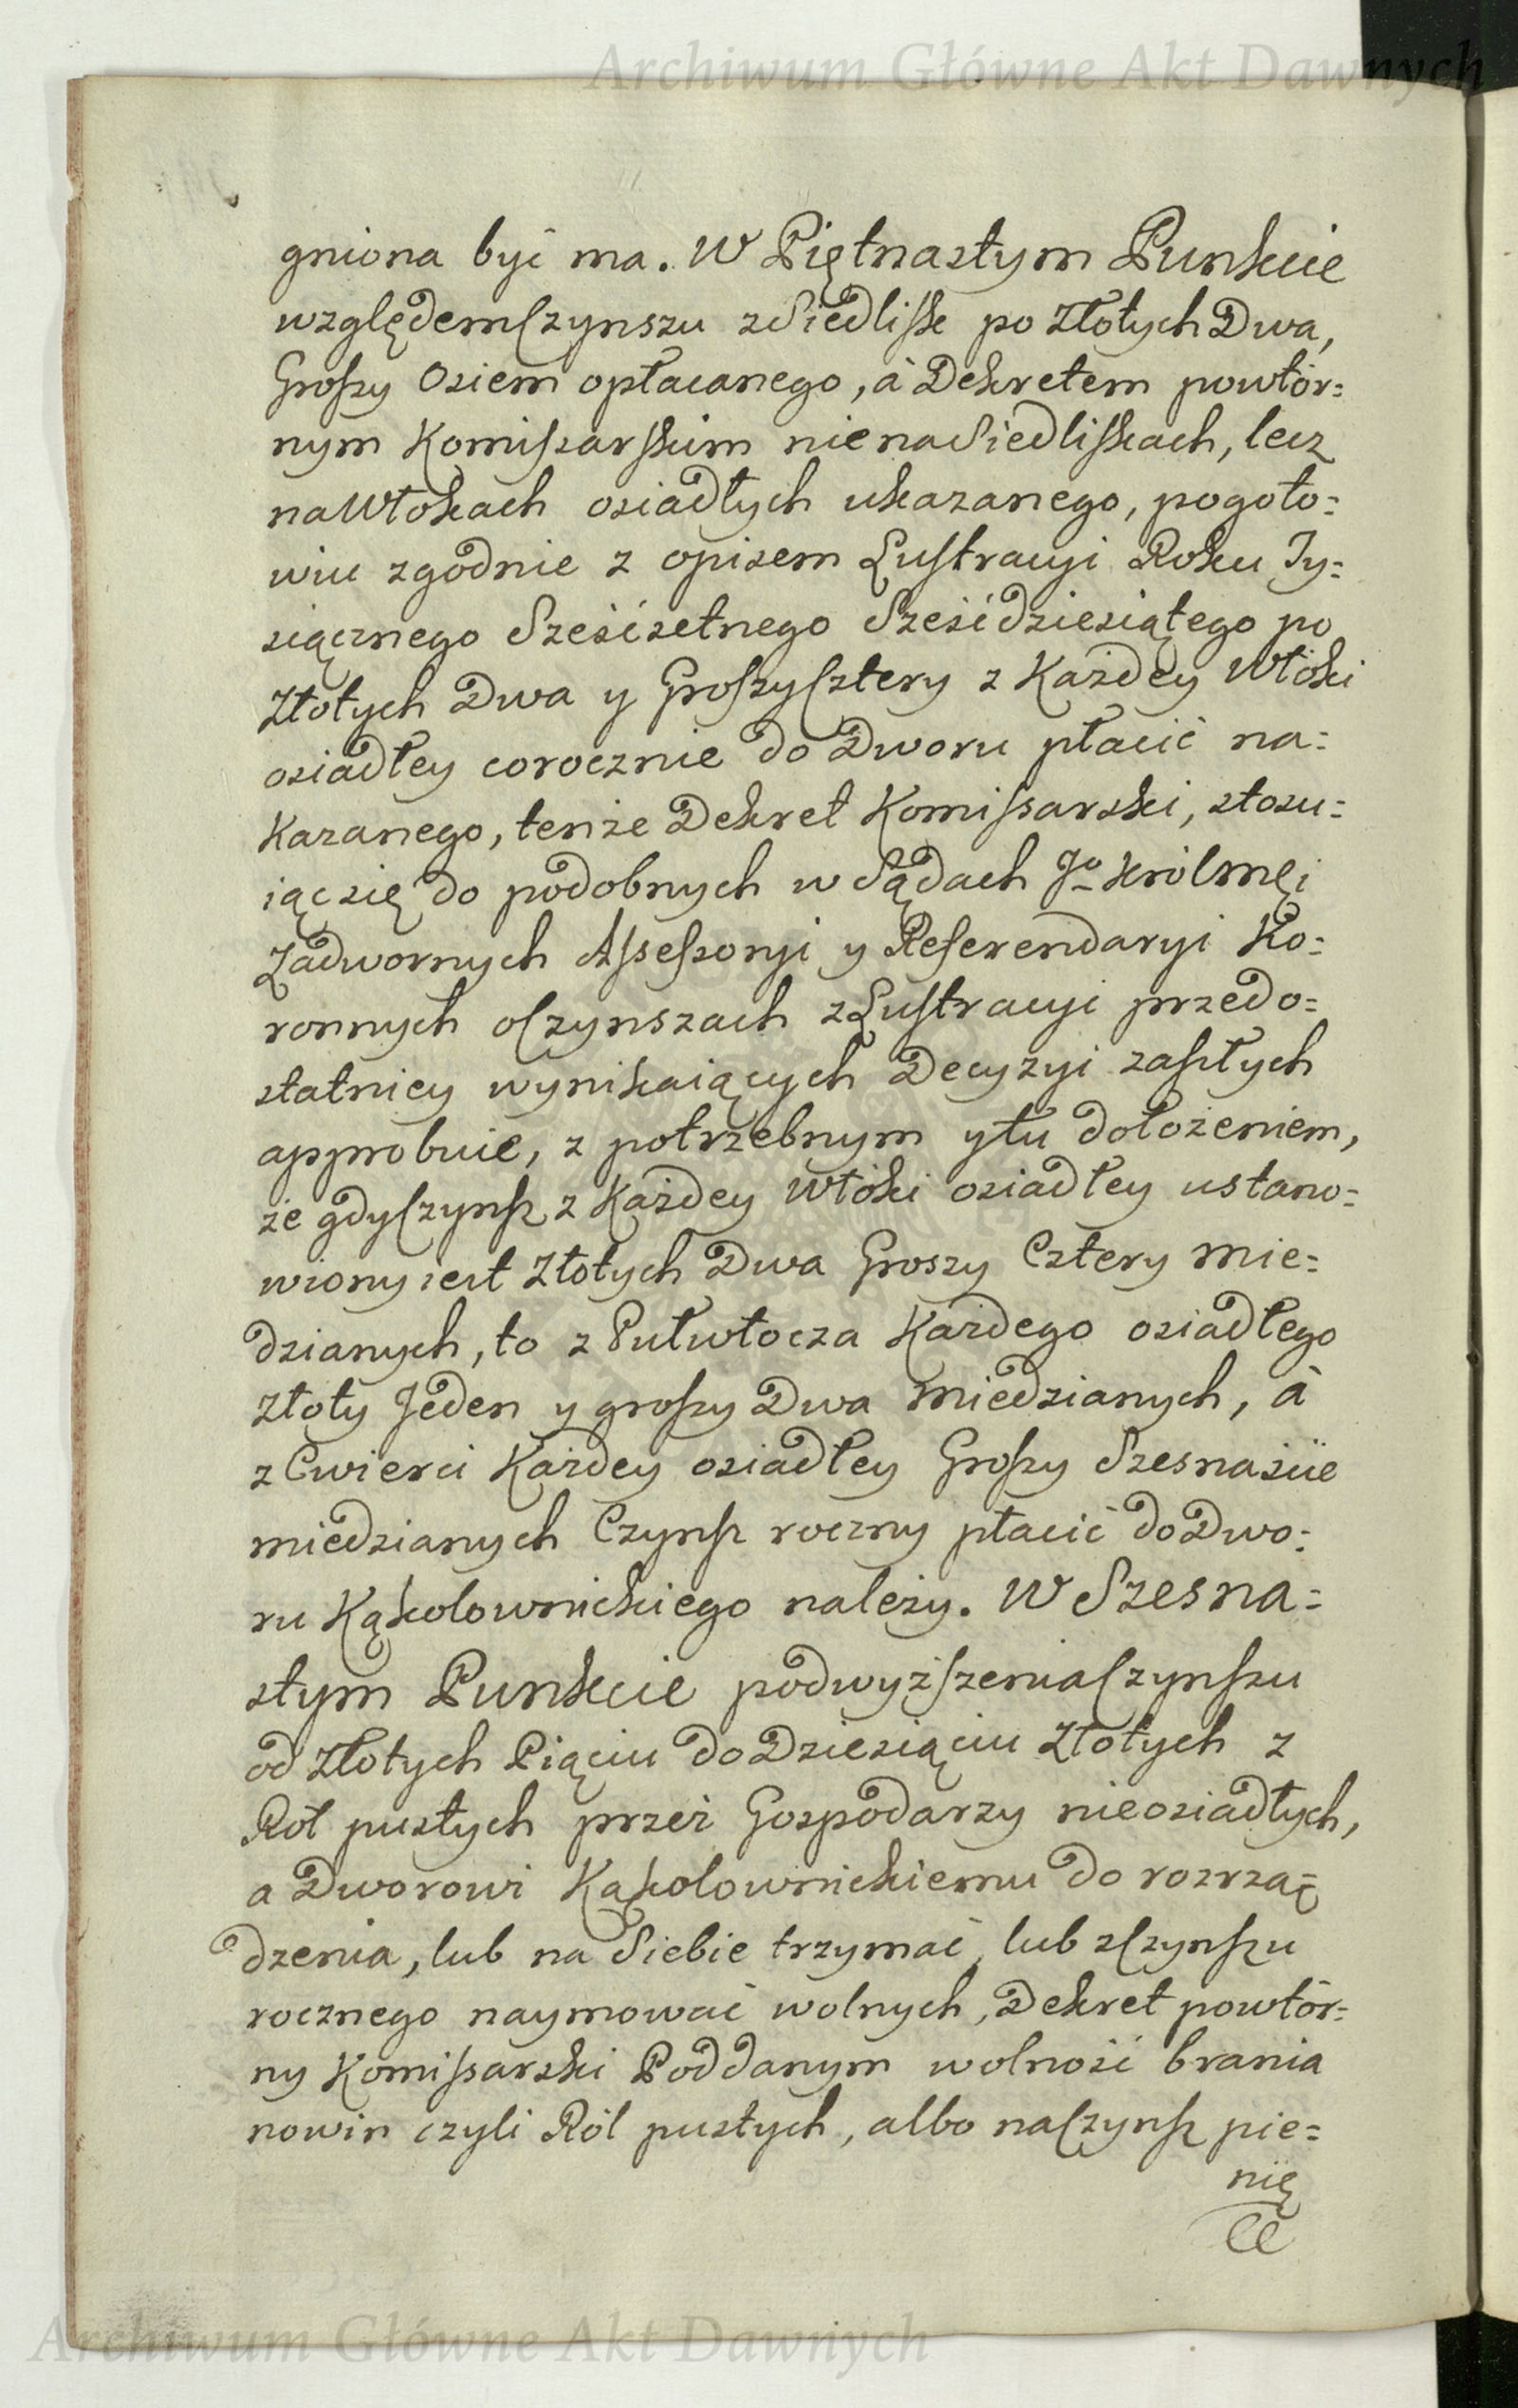 Archiwum Główne Akt Dawnych
gniona być ma. W Piętnastym Punkcie
względem Czynszu z Siedlisk po Złotych Dwa,
Groszy Osiem opłacanego, à Dekretem powtór=
nym Komissarskim nie na Siedliskach, lecz
na Włokach osiadłych ukazanego, pogoto=
wiu zgodnie z opisem Lustracyi Roku Ty=
siącznego Sześćsetnego Sześćdziesiątego po
Złotych Dwa y Groszy Cztery z Każdey Włóki
osiadłey corocznie do Dworu płacić na=
kazanego, tenże Dekret Komissarski, stosu=
iąc się do podobnych w Sądach Jo Królmęi
Zadwornych Assessoryi y Referendaryi Ko=
ronnych o Czynszach z Lustracyi przedo=
statniey wynikaiących Decyzyi zaszłych
approbuie, z potrzebnym y tu dołożeniem,
że gdy Czynsz z Każdey Włóki osiadłey ustano=
wiony iest Złotych Dwa Groszy Cztery mie=
dzianych, to z Pułwłocza Każdego osiadłego
Złoty Jeden y groszy Dwa miedzianych, à
z Cwierci Każdey osiadłey Groszy Szesnaście
miedzianych Czynsz roczny płacić do Dwo=
ru Kąkolownickiego należy. W Szesna=
stym Punkcie podwyższenia Czynszu
od Złotych Piąciu do Dziesiąciu Złotych z
Rol pustych przez Gospodarzy nieosiadłych,
a Dworowi Kąkolownickiemu do rozrzą=
dzenia, lub na Siebie trzymać, lub z Czynszu
rocznego naymować wolnych, Dekret powtór=
ny Komissarski Poddanym wolność brania
nowin czyli Ról pustych, albo na Czynsz pie=
nię
Archiwum Główne Akt Dawnych